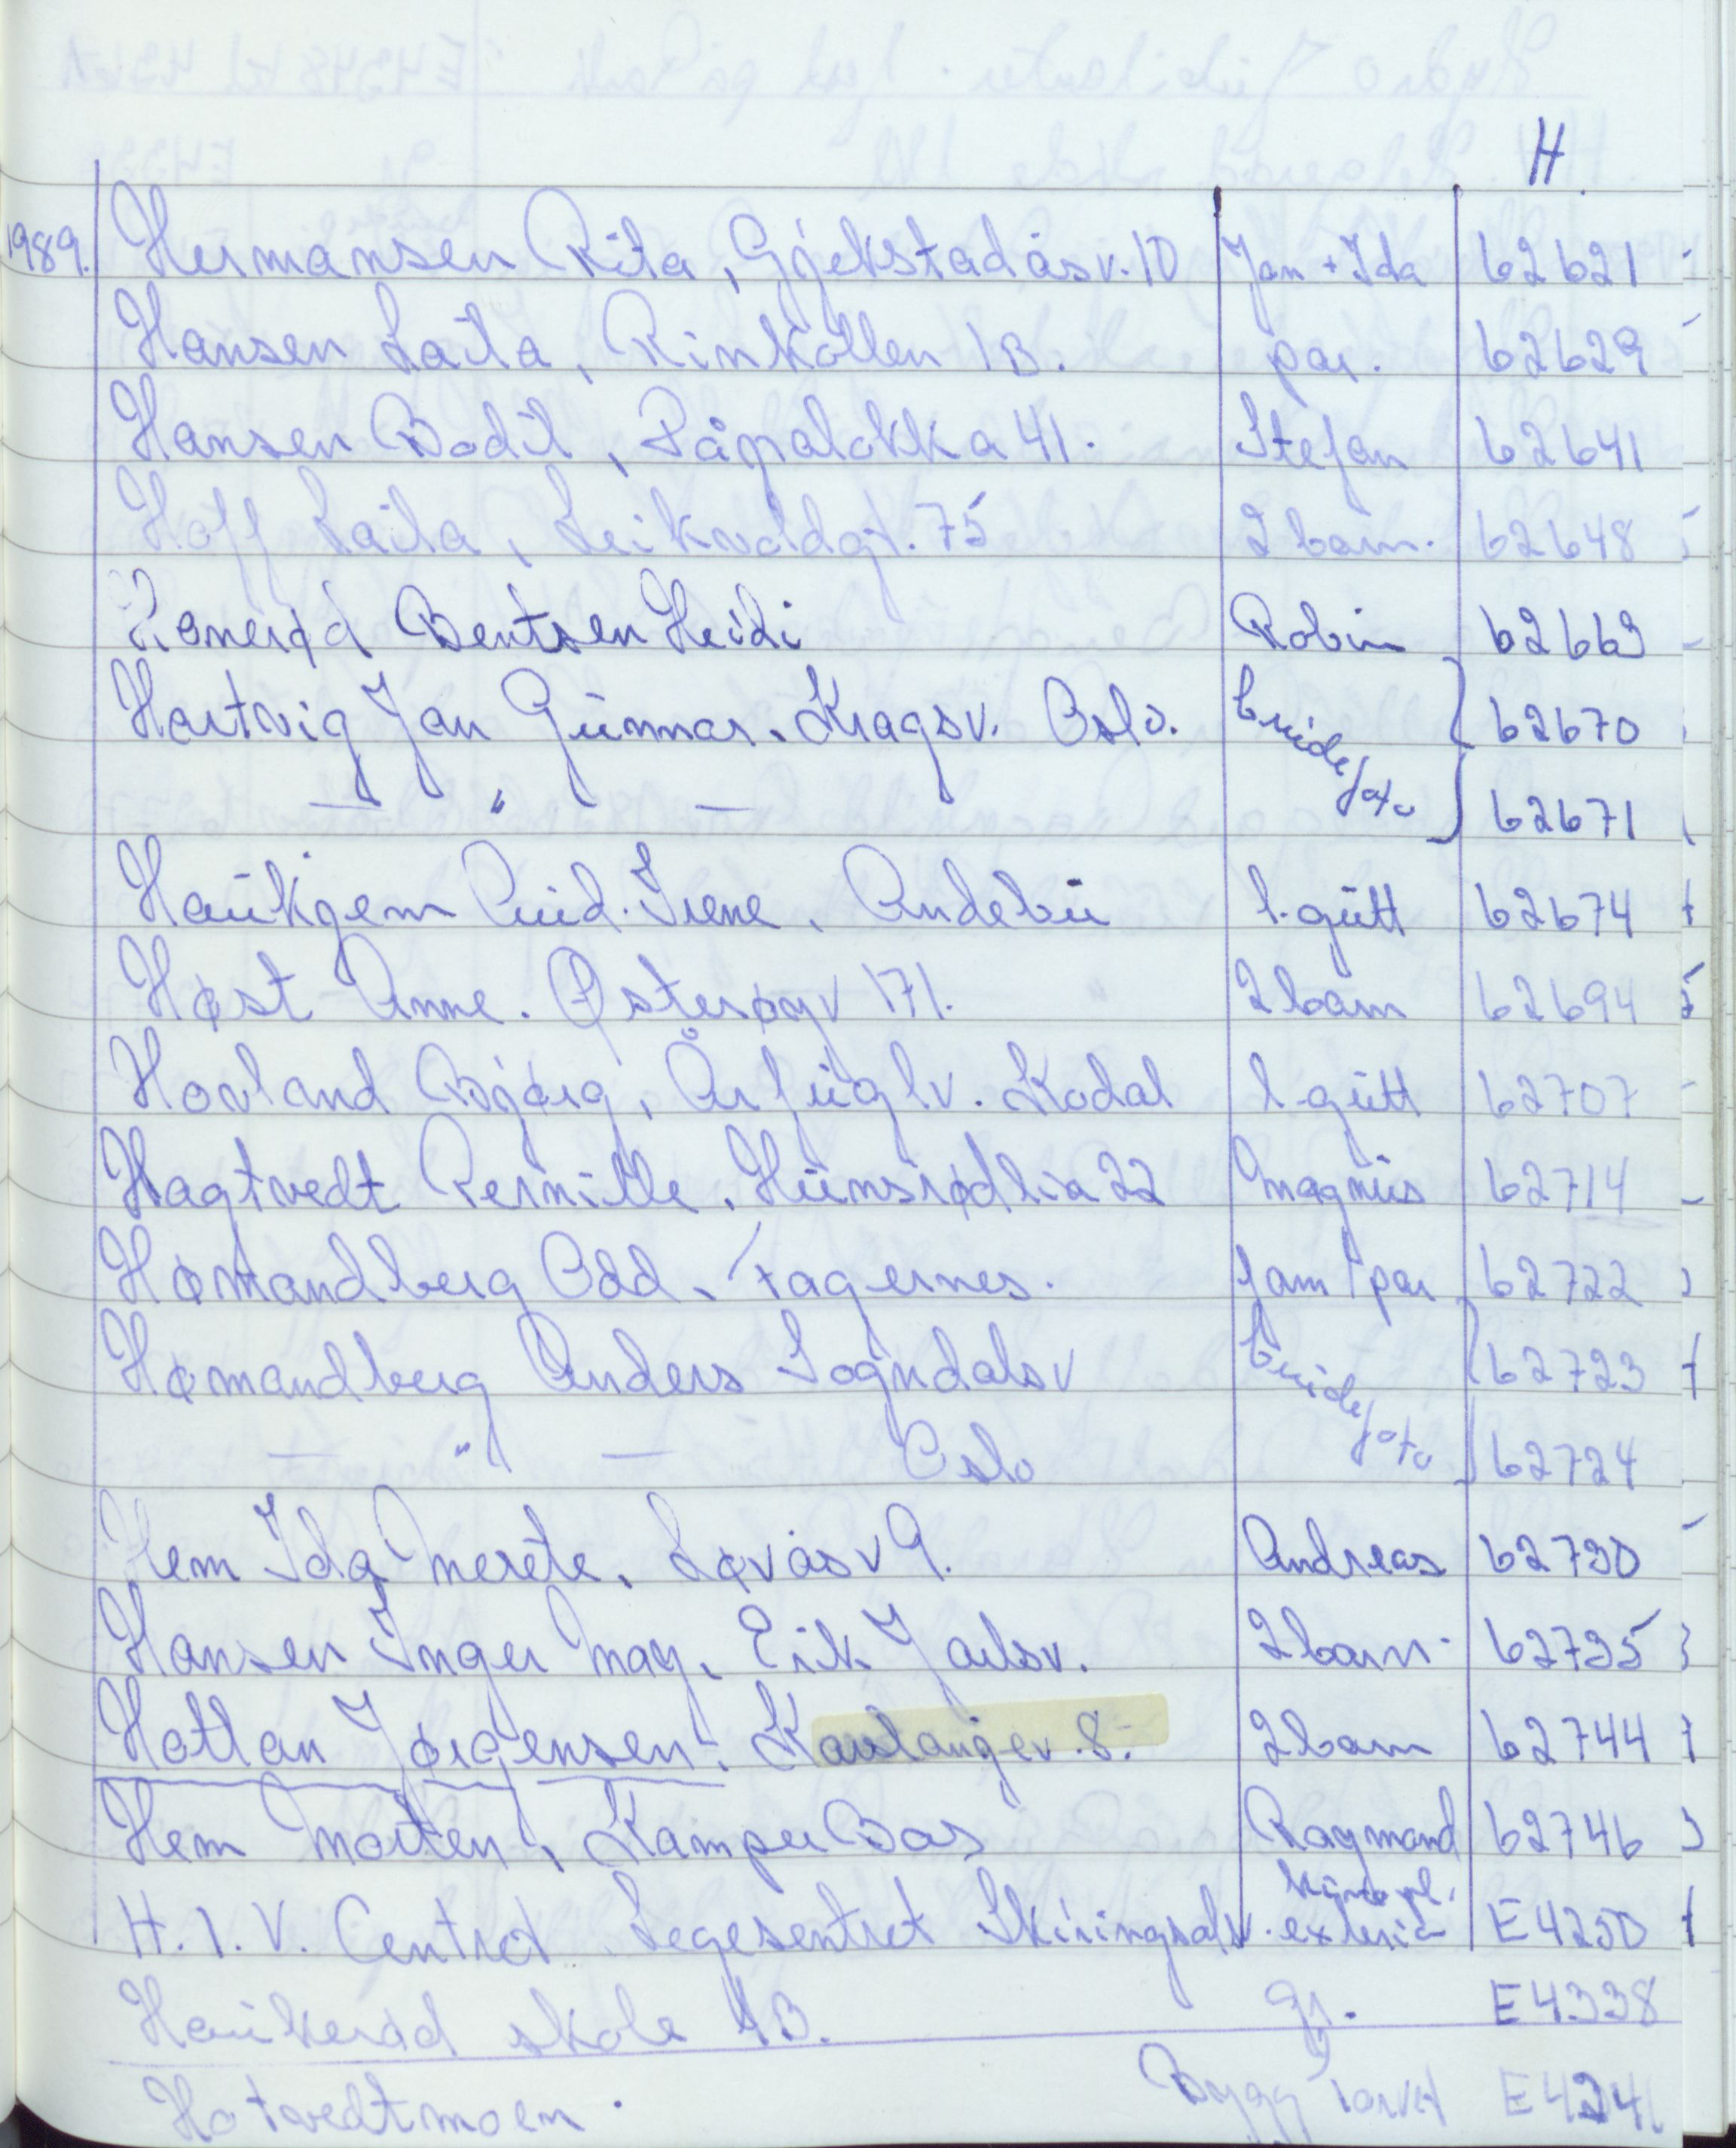 H.
1989. Hermansen Rita, Gjekstadåsv. 10 Jan + Ida 62621
Hansen Laila, Rinkollen 1B. par. 62629
Hansen Bodil, Påpaløkka 41. Stefan 62641
Hoff Laila, Leikvoldgt. 75 2 barn. 62648
Romerød Bentsen Heidi Robin 62663
Hartvig Jan Gunnar. Kragsv. Oslo. brude 62670
— " — foto 62671
Haukgem Aud. Irene. Andebu l. gutt 62674
Høst Anne. Østerøyv 171. 2 barn 62694
Hovland Bjørg, Århuglv. Kodal l. gutt 62707
Hagtvedt Pernille, Hunsrødlia 22 Magnus 62714
Hømandberg Odd, Fagernes. fam/par 62722
Hømandberg Anders Sogndalsv brude 62723
— " — Oslo foto 62724
Hem Ida Merete, Løvåsv 9. Andreas 62730
Hansen Inger May, Eirik Jarlsv. 2 barn. 62735
Hotlan Jørgensen. Kaulangev. 8. 2 barn 62744
Hem Morten, Kamper Bas Raymond 62746
H.I.V. Centret Legesentret Skiringsalsv. exteriør E4250
Haukerød skole 4B. gr. E4338
Hotvedtmoen. Bygg